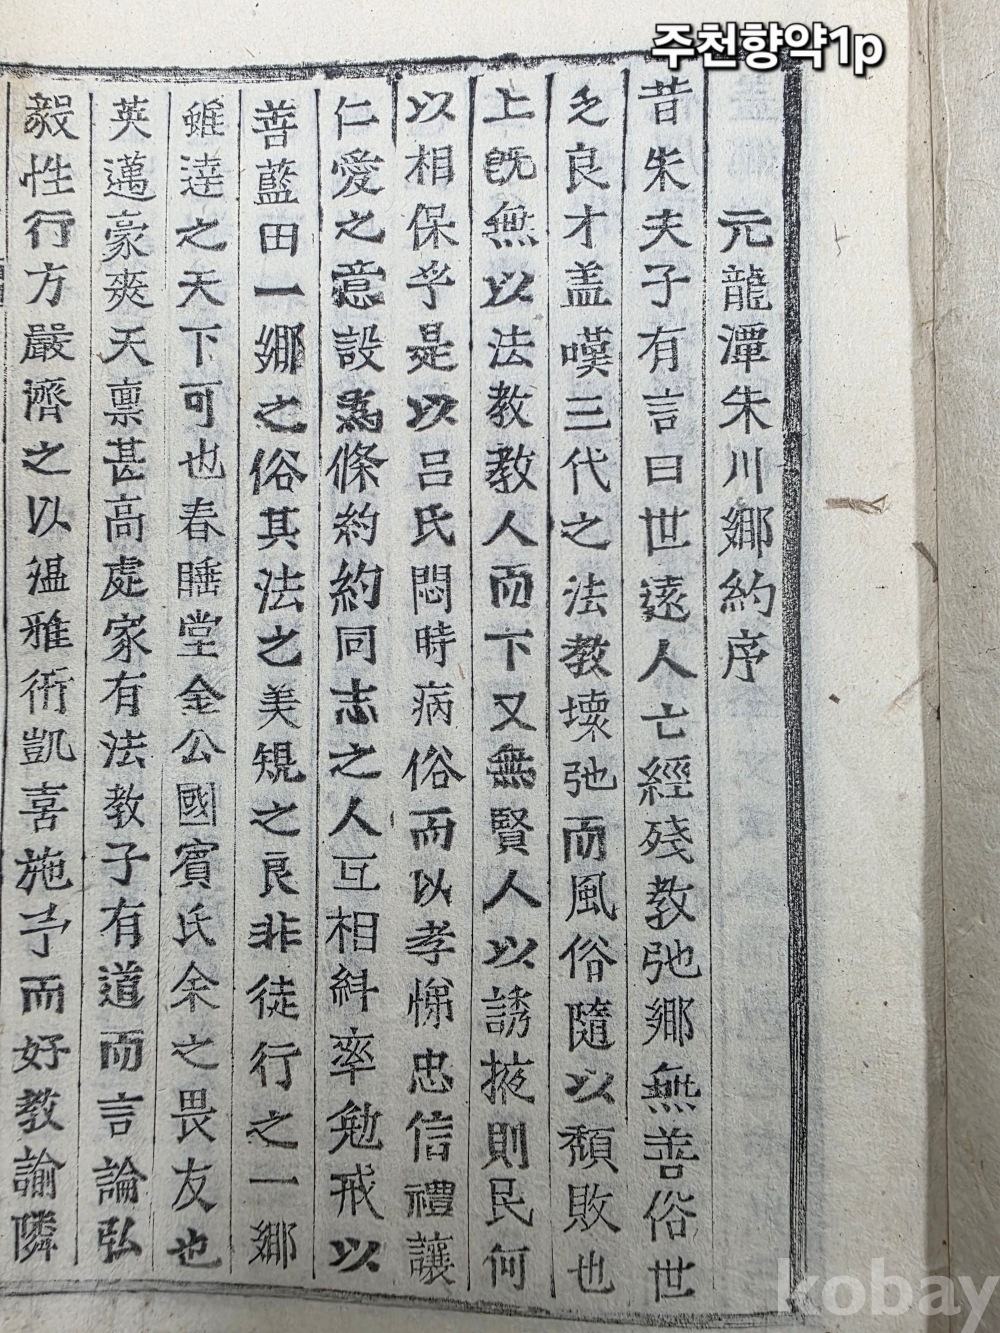 주천향약1p
元龍潭朱川鄕約序
昔朱夫子有言曰世遠人亡經殘敎弛鄕無善俗世
乏良才盖嘆三代之法敎壞弛而風俗隨以頹敗也
上旣無以法敎敎人而下又無賢人以誘掖則民何
以相保乎是以呂氏悶時病俗而以孝悌忠信禮讓
仁愛之意設爲條約約同志之人互相糾率勉戒以
善藍田一鄕之俗其法之美規之良非徒行之一鄕
雖達之天下可也春睡堂金公國賓氏余之畏友也
英邁豪爽天禀甚高處家有法敎子有道而言論弘
毅性行方嚴濟之以溫雅衎凱喜施予而好敎諭隣
kobay